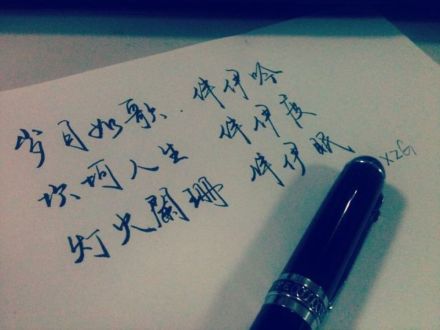 岁月如歌.伴伊吟
坎坷人生 伴伊度
灯火阑珊 伴伊眠
xzG